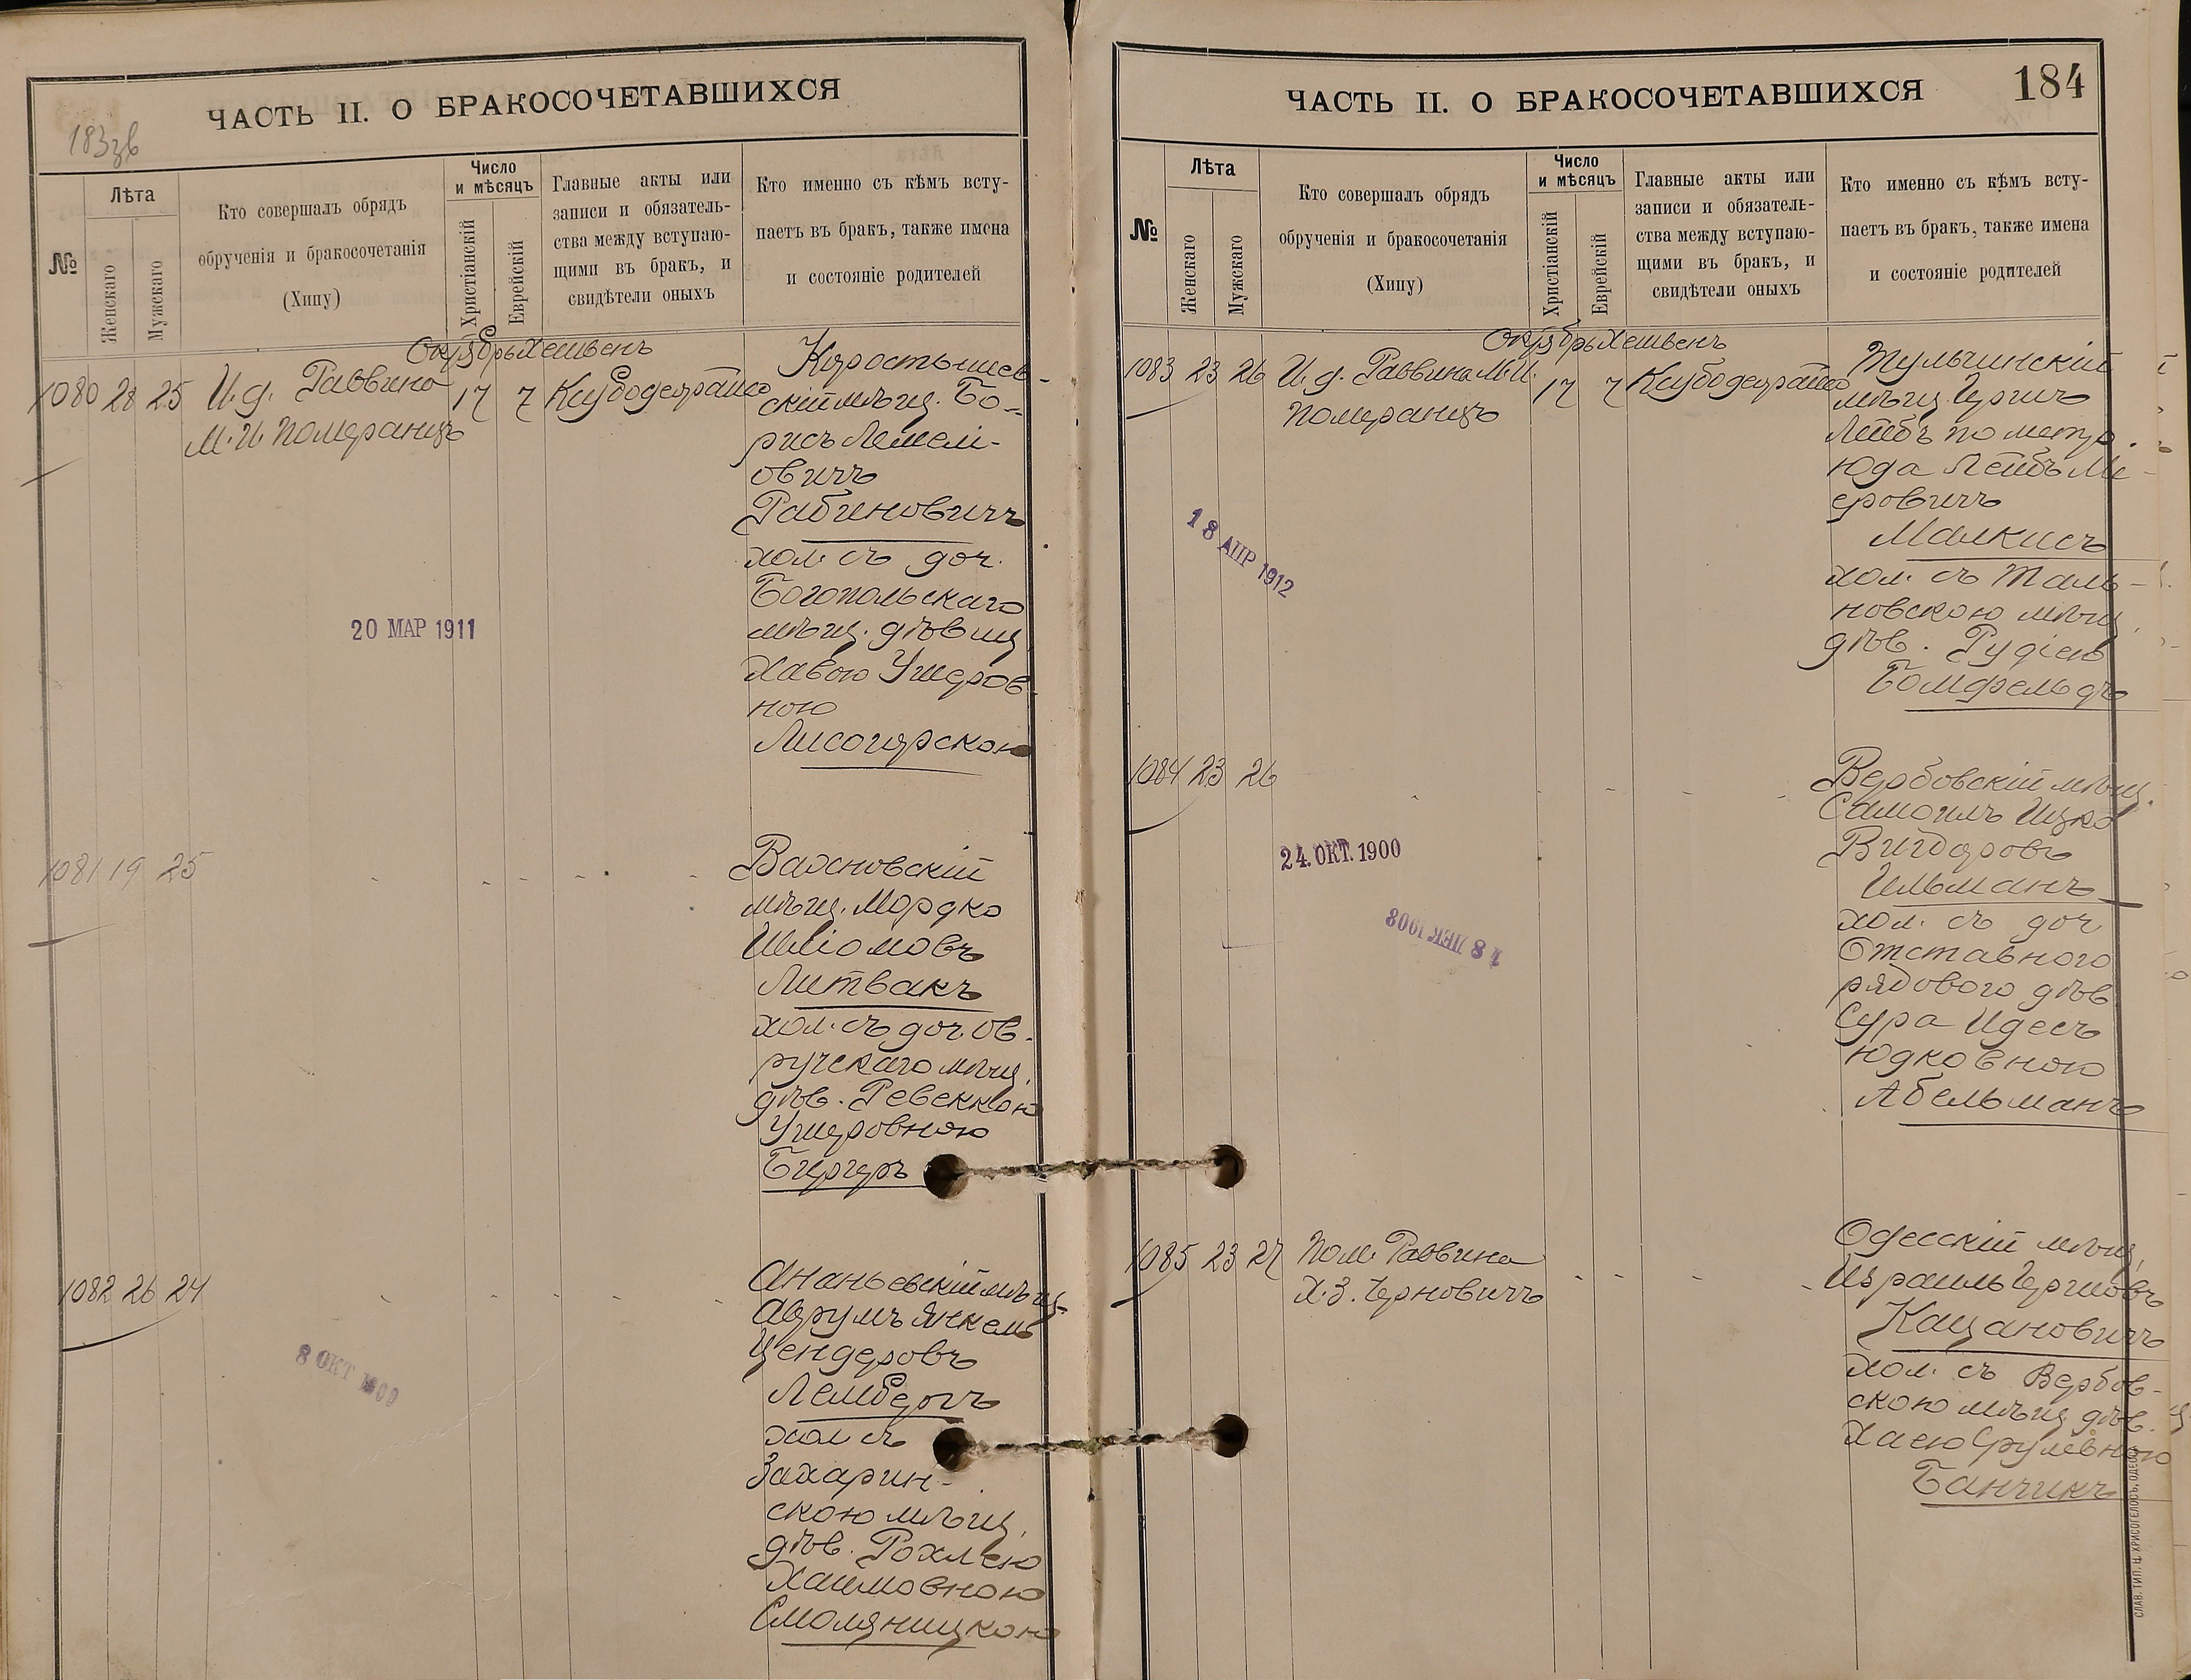 ЧАСТЬ II. О БРАКОСОЧЕТАВШИХСЯ
183зв
№
Лѣта
Женскаго
Мужскаго
Кто совершалъ обрядъ
обрученія и бракосочетанія
(Хипу)
Число
и мѣсяцъ
Христіанскій
Еврейскій
Главные акты или
записи и обязатель-
ства между вступаю-
щими въ бракъ, и
свидѣтели оныхъ
Кто именно съ кѣмъ всту-
паетъ въ бракъ, также имена
и состояніе родителей
Октябрь Хешвенъ
1080 28 25 И.д. Раввина 17 7
М.И. Померанцъ
Коростышев-
скій мѣщ. Бо-
рисъ
овичъ
Рабиновичъ
хол. съ доч.
Богопольскаго
мѣщ. дѣвиц.
Хавою Ушеров-
ною
Лисогорскою
20 МАР 1911
1081 19 25
Вахновскій
мѣщ. Мордко
Шліомовъ
Литвакъ
хол. съ доч. ов-
ручскаго мѣщ.
дѣв. Ревеккою
Ушеровною
Бергеръ
1082 26 24
Ананьевскій мѣщ.
Аврумъ Янкель
Цендеровъ
Лембергъ
хол съ
Захарин-
скою мѣщ.
дѣв. Рохлею
Хаимовною
Смоляницкою
8 ОКТ 1909
ЧАСТЬ II. О БРАКОСОЧЕТАВШИХСЯ
184
№
Лѣта
Женскаго
Мужскаго
Кто совершалъ обрядъ
обрученія и бракосочетанія
(Хипу)
Число
и мѣсяцъ
Христіанскій
Еврейскій
Главные акты или
записи и обязатель-
ства между вступаю-
щими въ бракъ, и
свидѣтели оныхъ
Кто именно съ кѣмъ всту-
паетъ въ бракъ, также имена
и состояніе родителей
Октябрь Хешвенъ
1083 23 26 И.д. Раввина М.И. 17 7
Померанцъ
Тульчинскій
мѣщ. Гершъ
Лейбъ по метр.
Юда Лейбъ Ме-
еровичъ
Малкисъ
хол. съ Таль-
новскою мѣщ.
дѣв. Рудіею
Бомфельдъ
18 АПР 1912
1084 23 26
Вербовскій мѣщ.
Самоилъ Ицко
Вигдоровъ
Ильманъ
хол. съ доч
Отставного
рядового дѣв
Сура Идесъ
Юдковною
Абельманъ
24. ОКТ. 1900
18 ДЕК 1908
1085 23 27 Пом. Раввина
Х.З. Черновичъ
Одесскій мѣщ.
Израиль Гершовъ
Кацановичъ
хол. съ Вербов-
скою мѣщ. дѣв.
Хаею Срулевною
Банчикъ
СЛАВ. ТИП. Н. ХРИСОГЕЛОСЪ, ОДЕССА